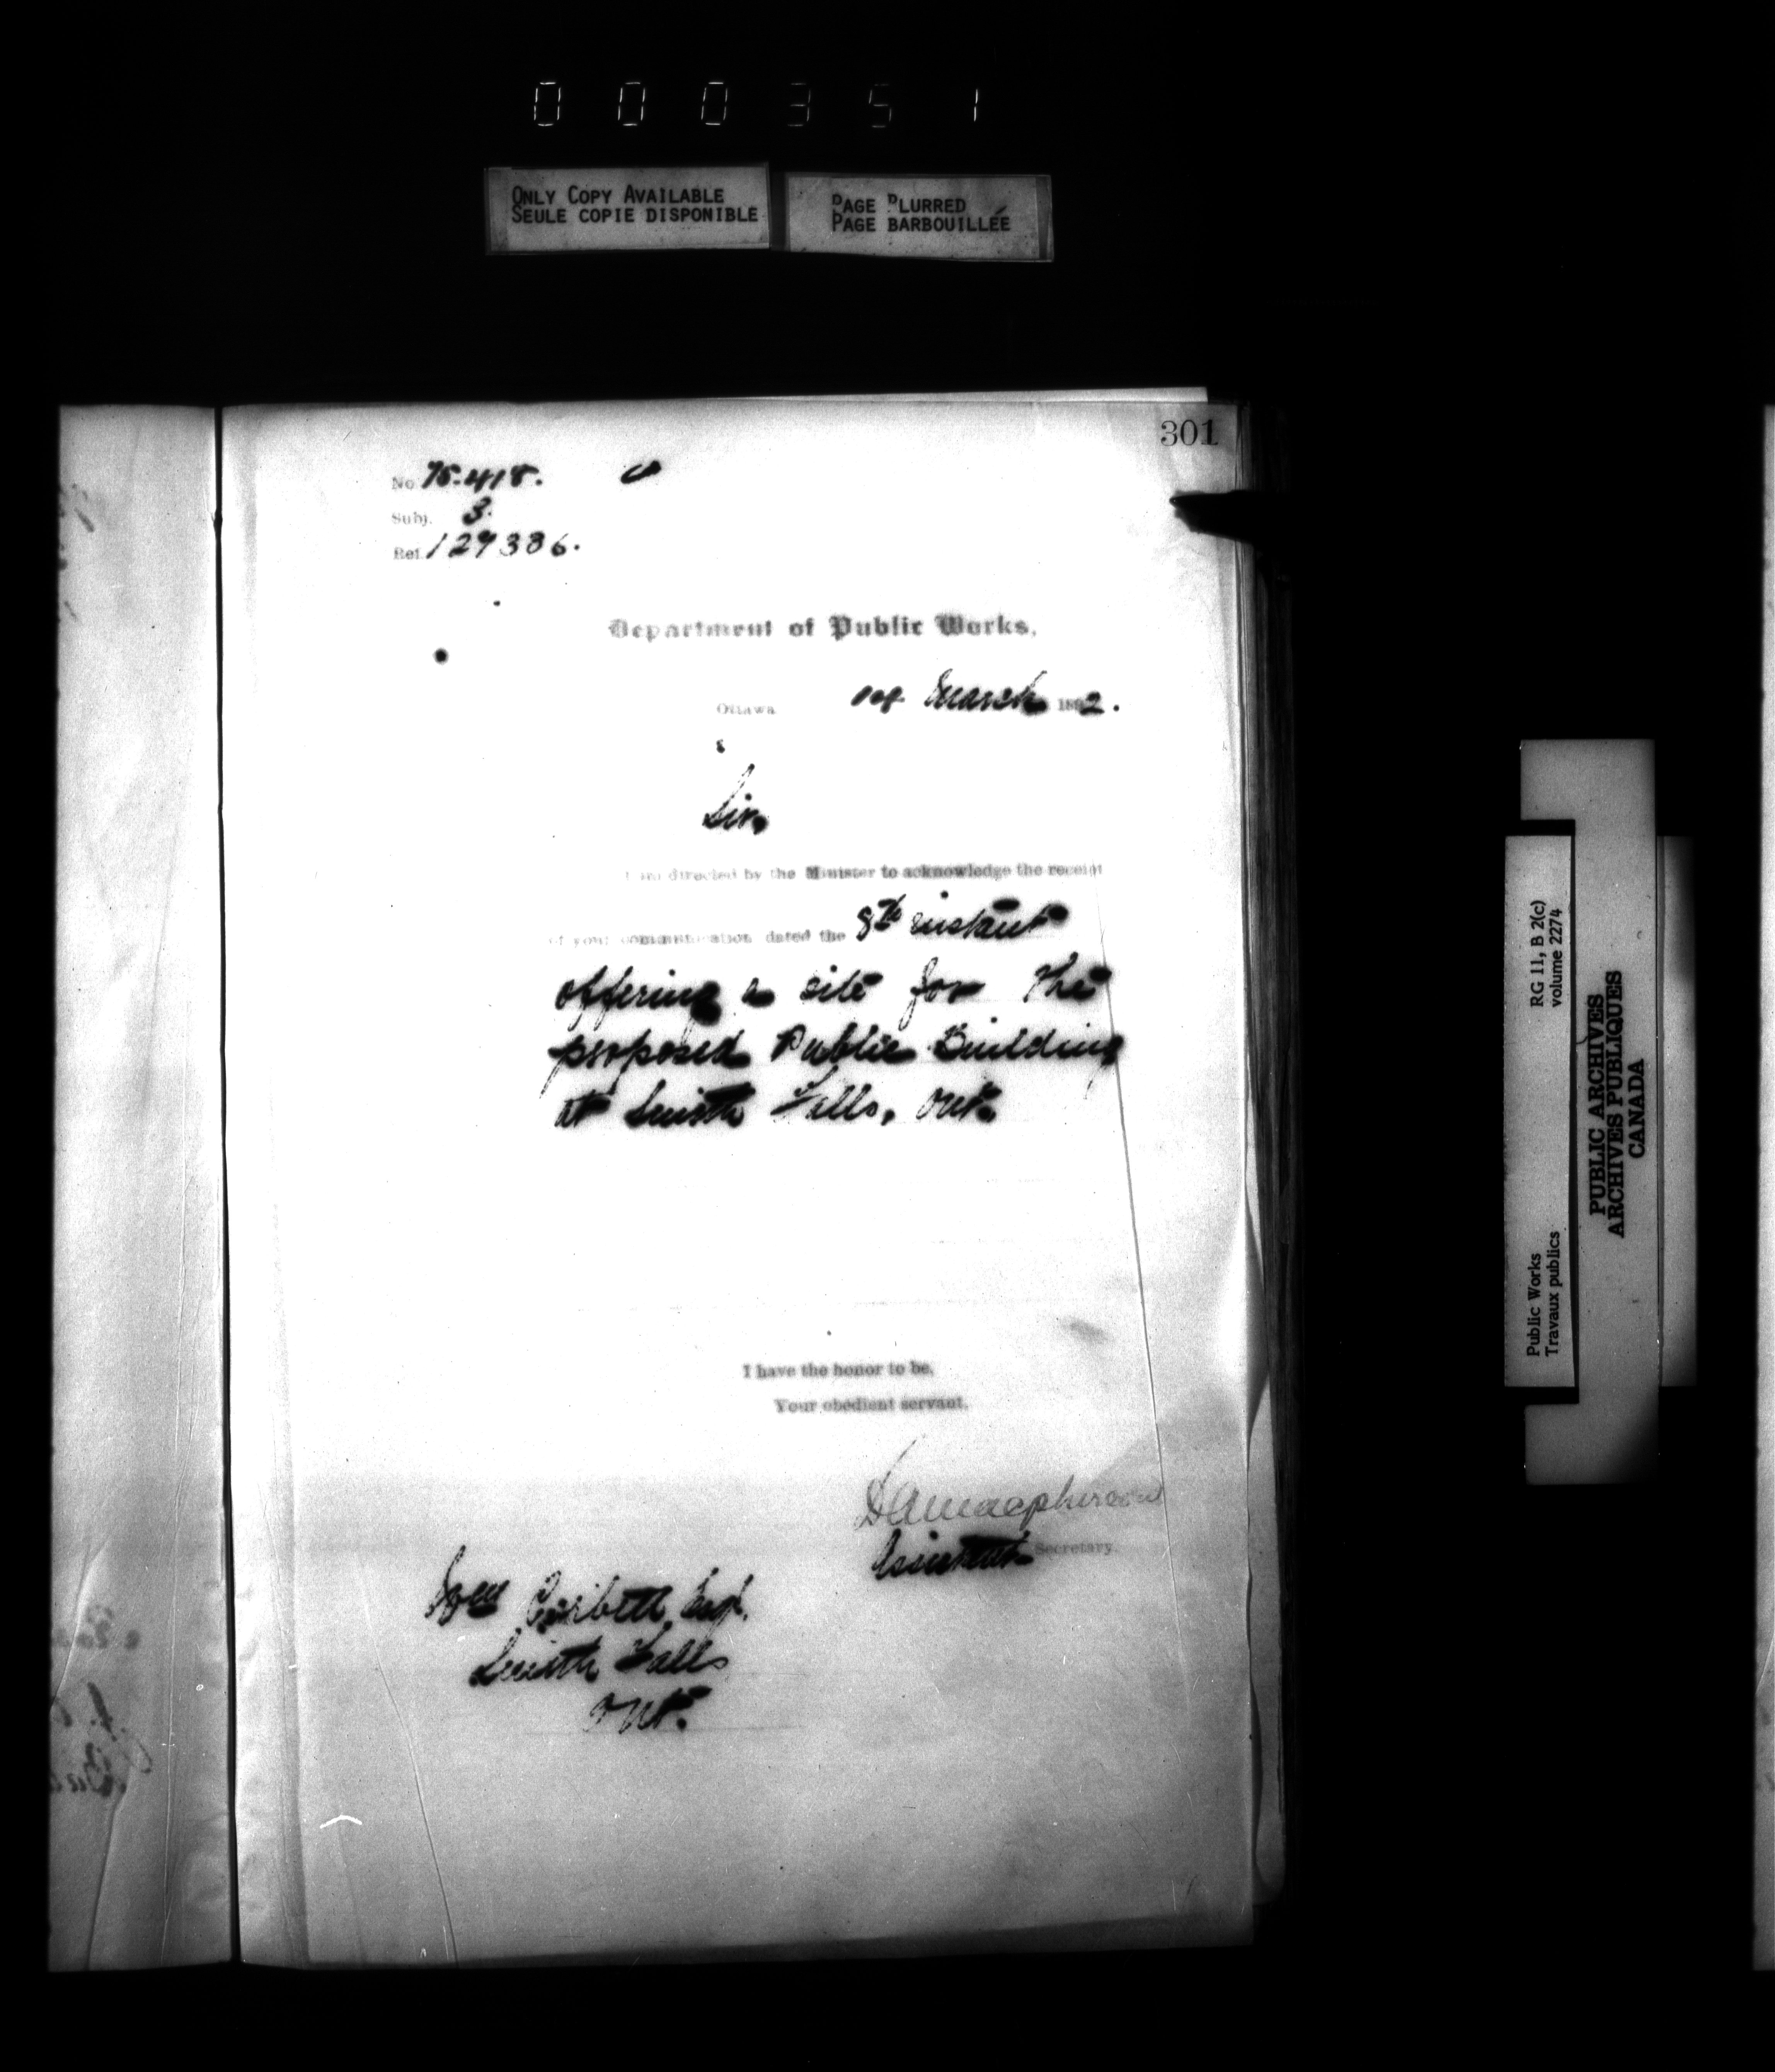 000351
ONLY COPY AVAILABLE
SEULE COPIE DISPONIBLE
PAGE BLURRED
PAGE BARBOUILLÉE
301
No. 75.418.
Subj. 3.
Ref. 129386.
Department of Public Works,
Ottawa March 1892.
Sir,
I am directed by the Minister to acknowledge the receipt
of your communication dated the 8th instant
offering a site for the
proposed Public Building
at Smith Falls, Ont.
I have the honor to be,
Your obedient servant,
D A Macpherson
Assistant Secretary.
Wm Corbett, Esq.
Smith Falls
Ont.
Public Works
Travaux publics
RG 11, B 2(c)
volume 2274
PUBLIC ARCHIVES
ARCHIVES PUBLIQUES
CANADA